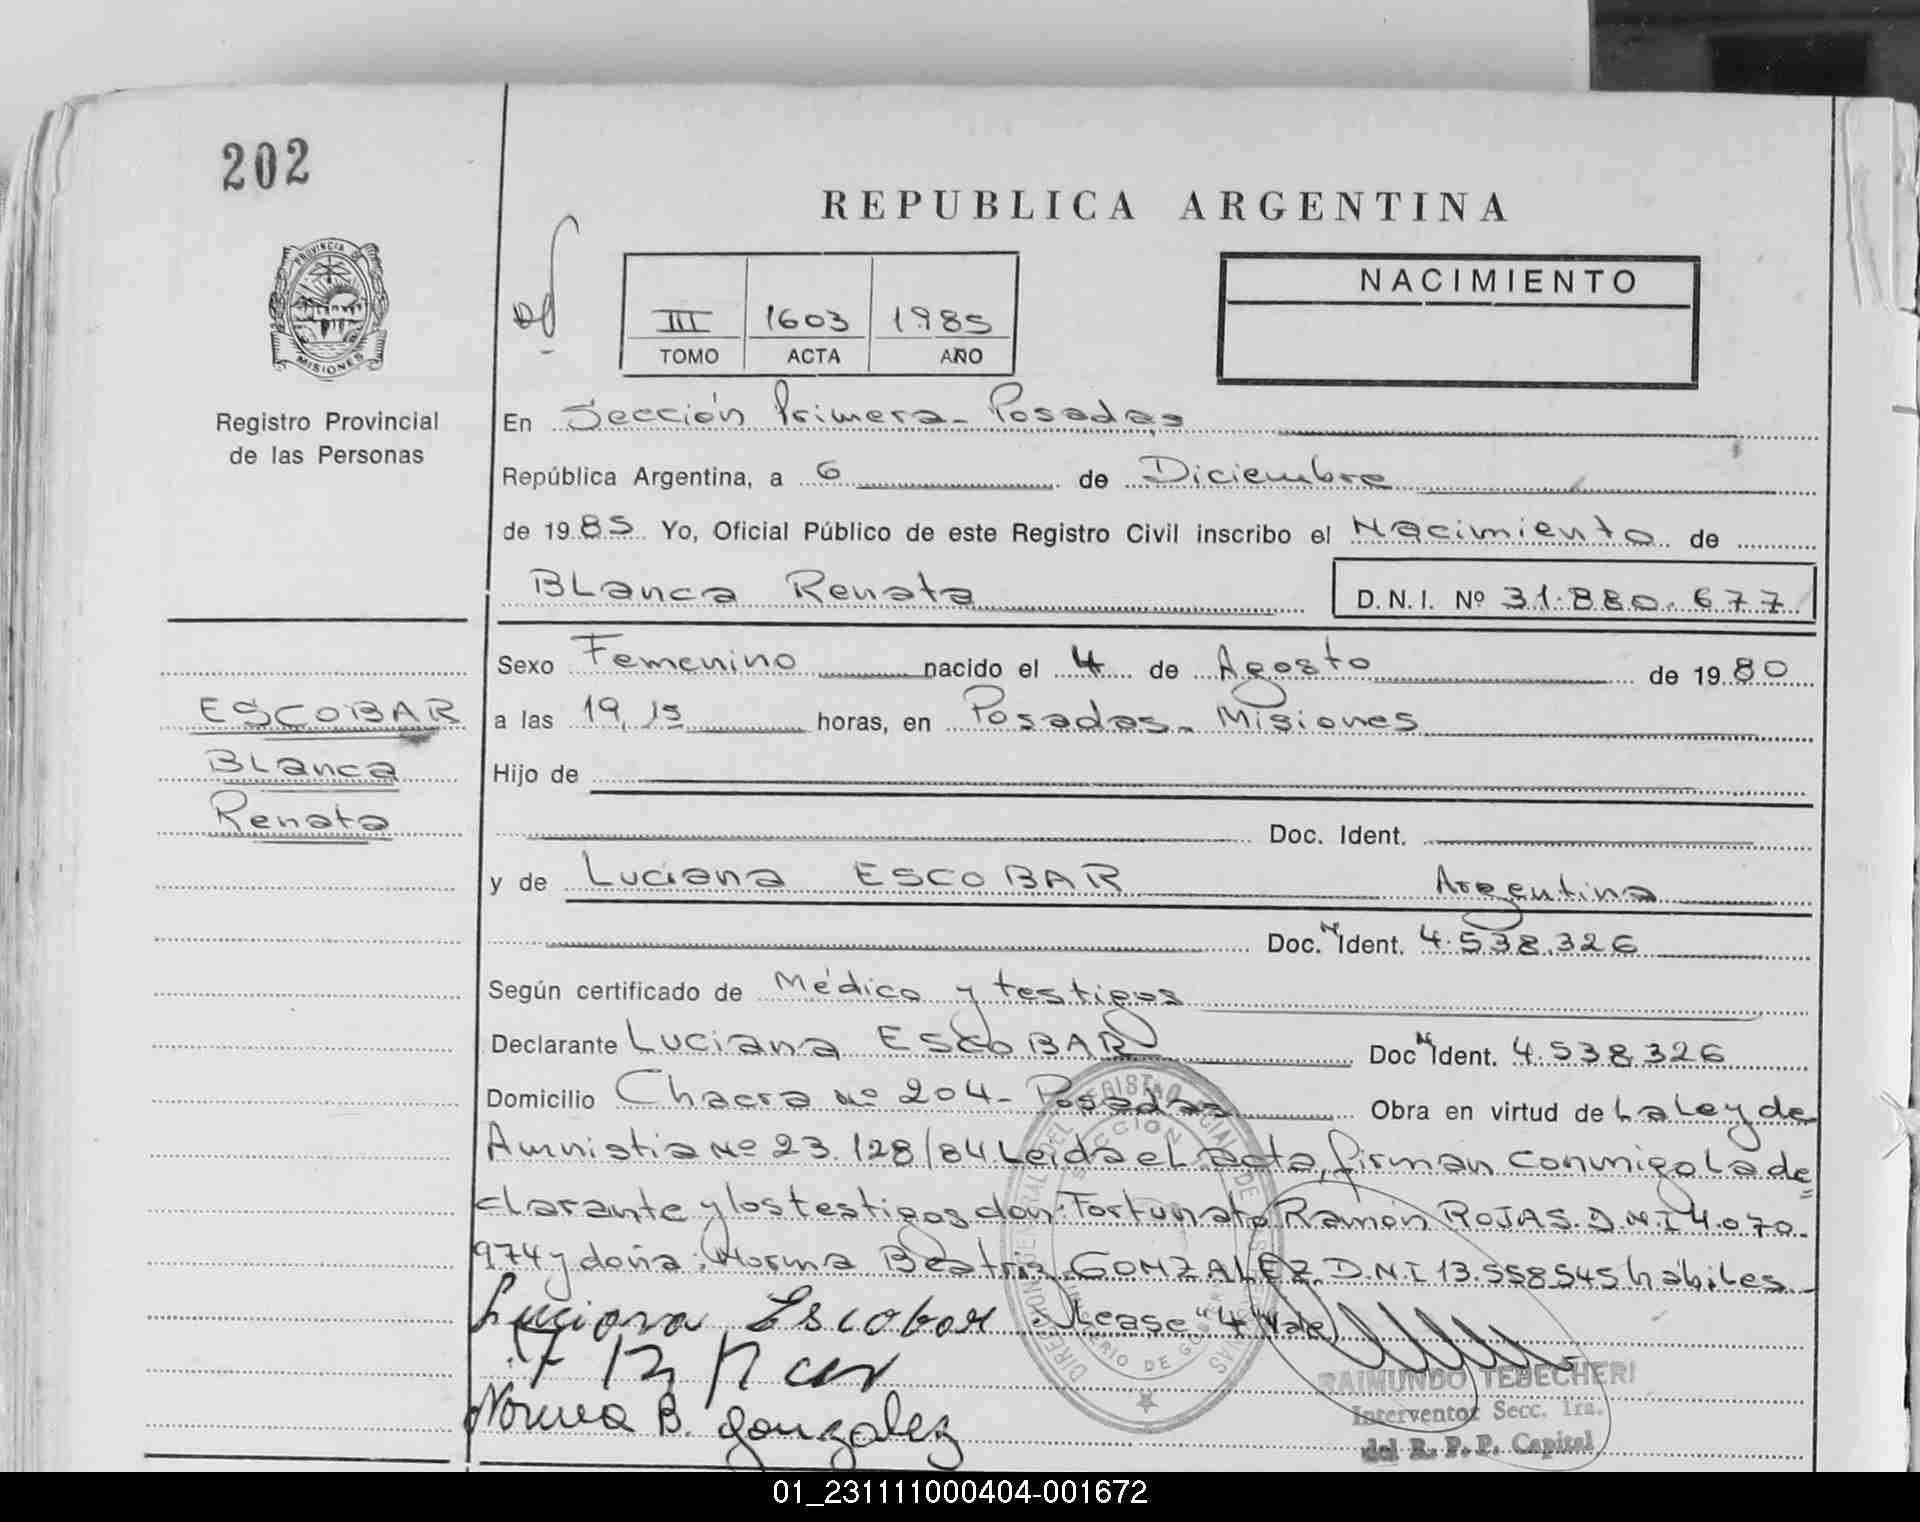 202
REPUBLICA ARGENTINA
PROVINCIA DE
MISIONES
Registro Provincial
de las Personas
III 1603 1985
TOMO ACTA AÑO
NACIMIENTO
En Sección Primera - Posadas
República Argentina, a 6 de Diciembre
de 1985 Yo, Oficial Público de este Registro Civil inscribo el Nacimiento de
Blanca Renata D.N.I. Nº 31.880.677
Sexo Femenino nacido el 4 de Agosto de 1980
ESCOBAR
Blanca
Renata
a las 19,15 horas, en Posadas - Misiones
Hijo de
Doc. Ident.
y de Luciana ESCOBAR Argentina
Doc. N Ident. 4.538.326
Según certificado de Médico y testigos
Declarante Luciana ESCOBAR Doc N Ident. 4.538.326
Domicilio Chacra Nº 204 - Posadas Obra en virtud de La Ley de
Amnistia Nº 23.128/84 Leida el acta, firman conmigo la de
clarante y los testigos don: Fortunato Ramón ROJAS. D.N.I 4.070.
974 y doña: Norma Beatriz GONZALEZ. D.N.I 13.558.545 hábiles.
Luciana Escobar Lease "4" Vale
Norma B. gonzalez
RAIMUNDO TEDECHERI
Interventor Secc. 1ra.
del R. P. P. Capital
01_231111000404-001672